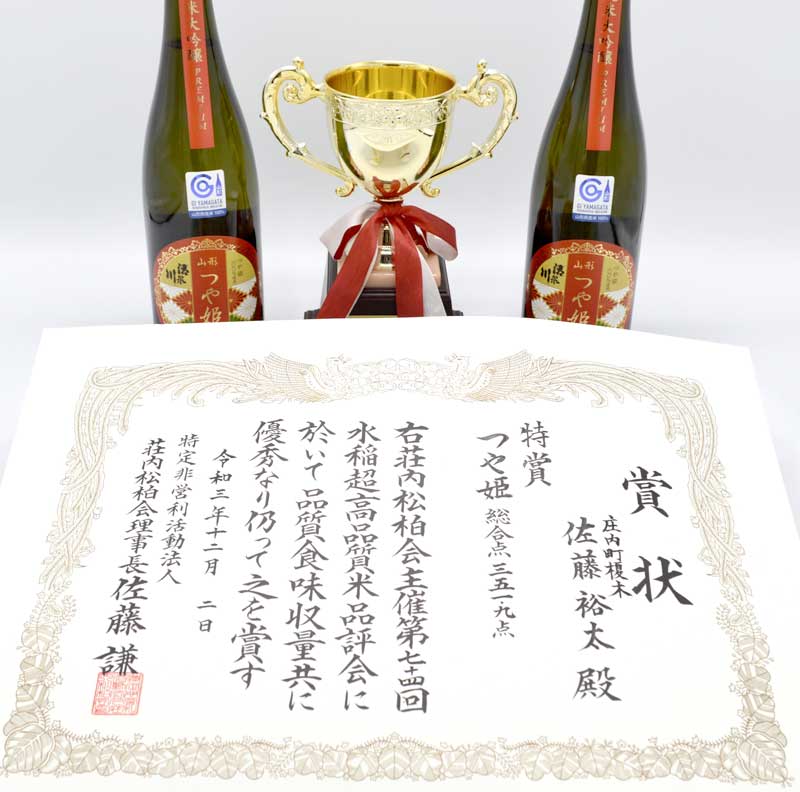 米大吟醸 PREMIUM
GI YAMAGATA
山形
つや姫
清泉川
米大吟醸 PREMIUM
GI YAMAGATA
山形
つや姫
清泉川
賞状
庄内町榎木
佐藤裕太殿
特賞
つや姫 総合点 三五一九点
右荘内松柏会主催第七十四回
水稲超高品質米品評会に
於いて品質食味収量共に
優秀なり仍って之を賞す
令和三年十二月 二日
特定非営利活動法人
荘内松柏会理事長佐藤謙